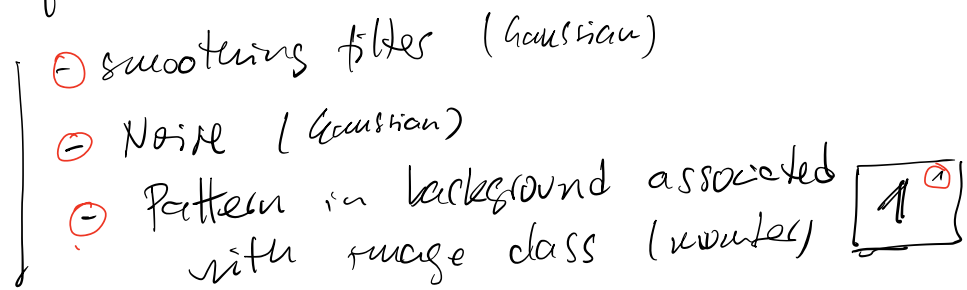 - smoothing filter (Gaussian)
- Noise (Gaussian)
- Pattern in background associated
with image class (number)
1 1